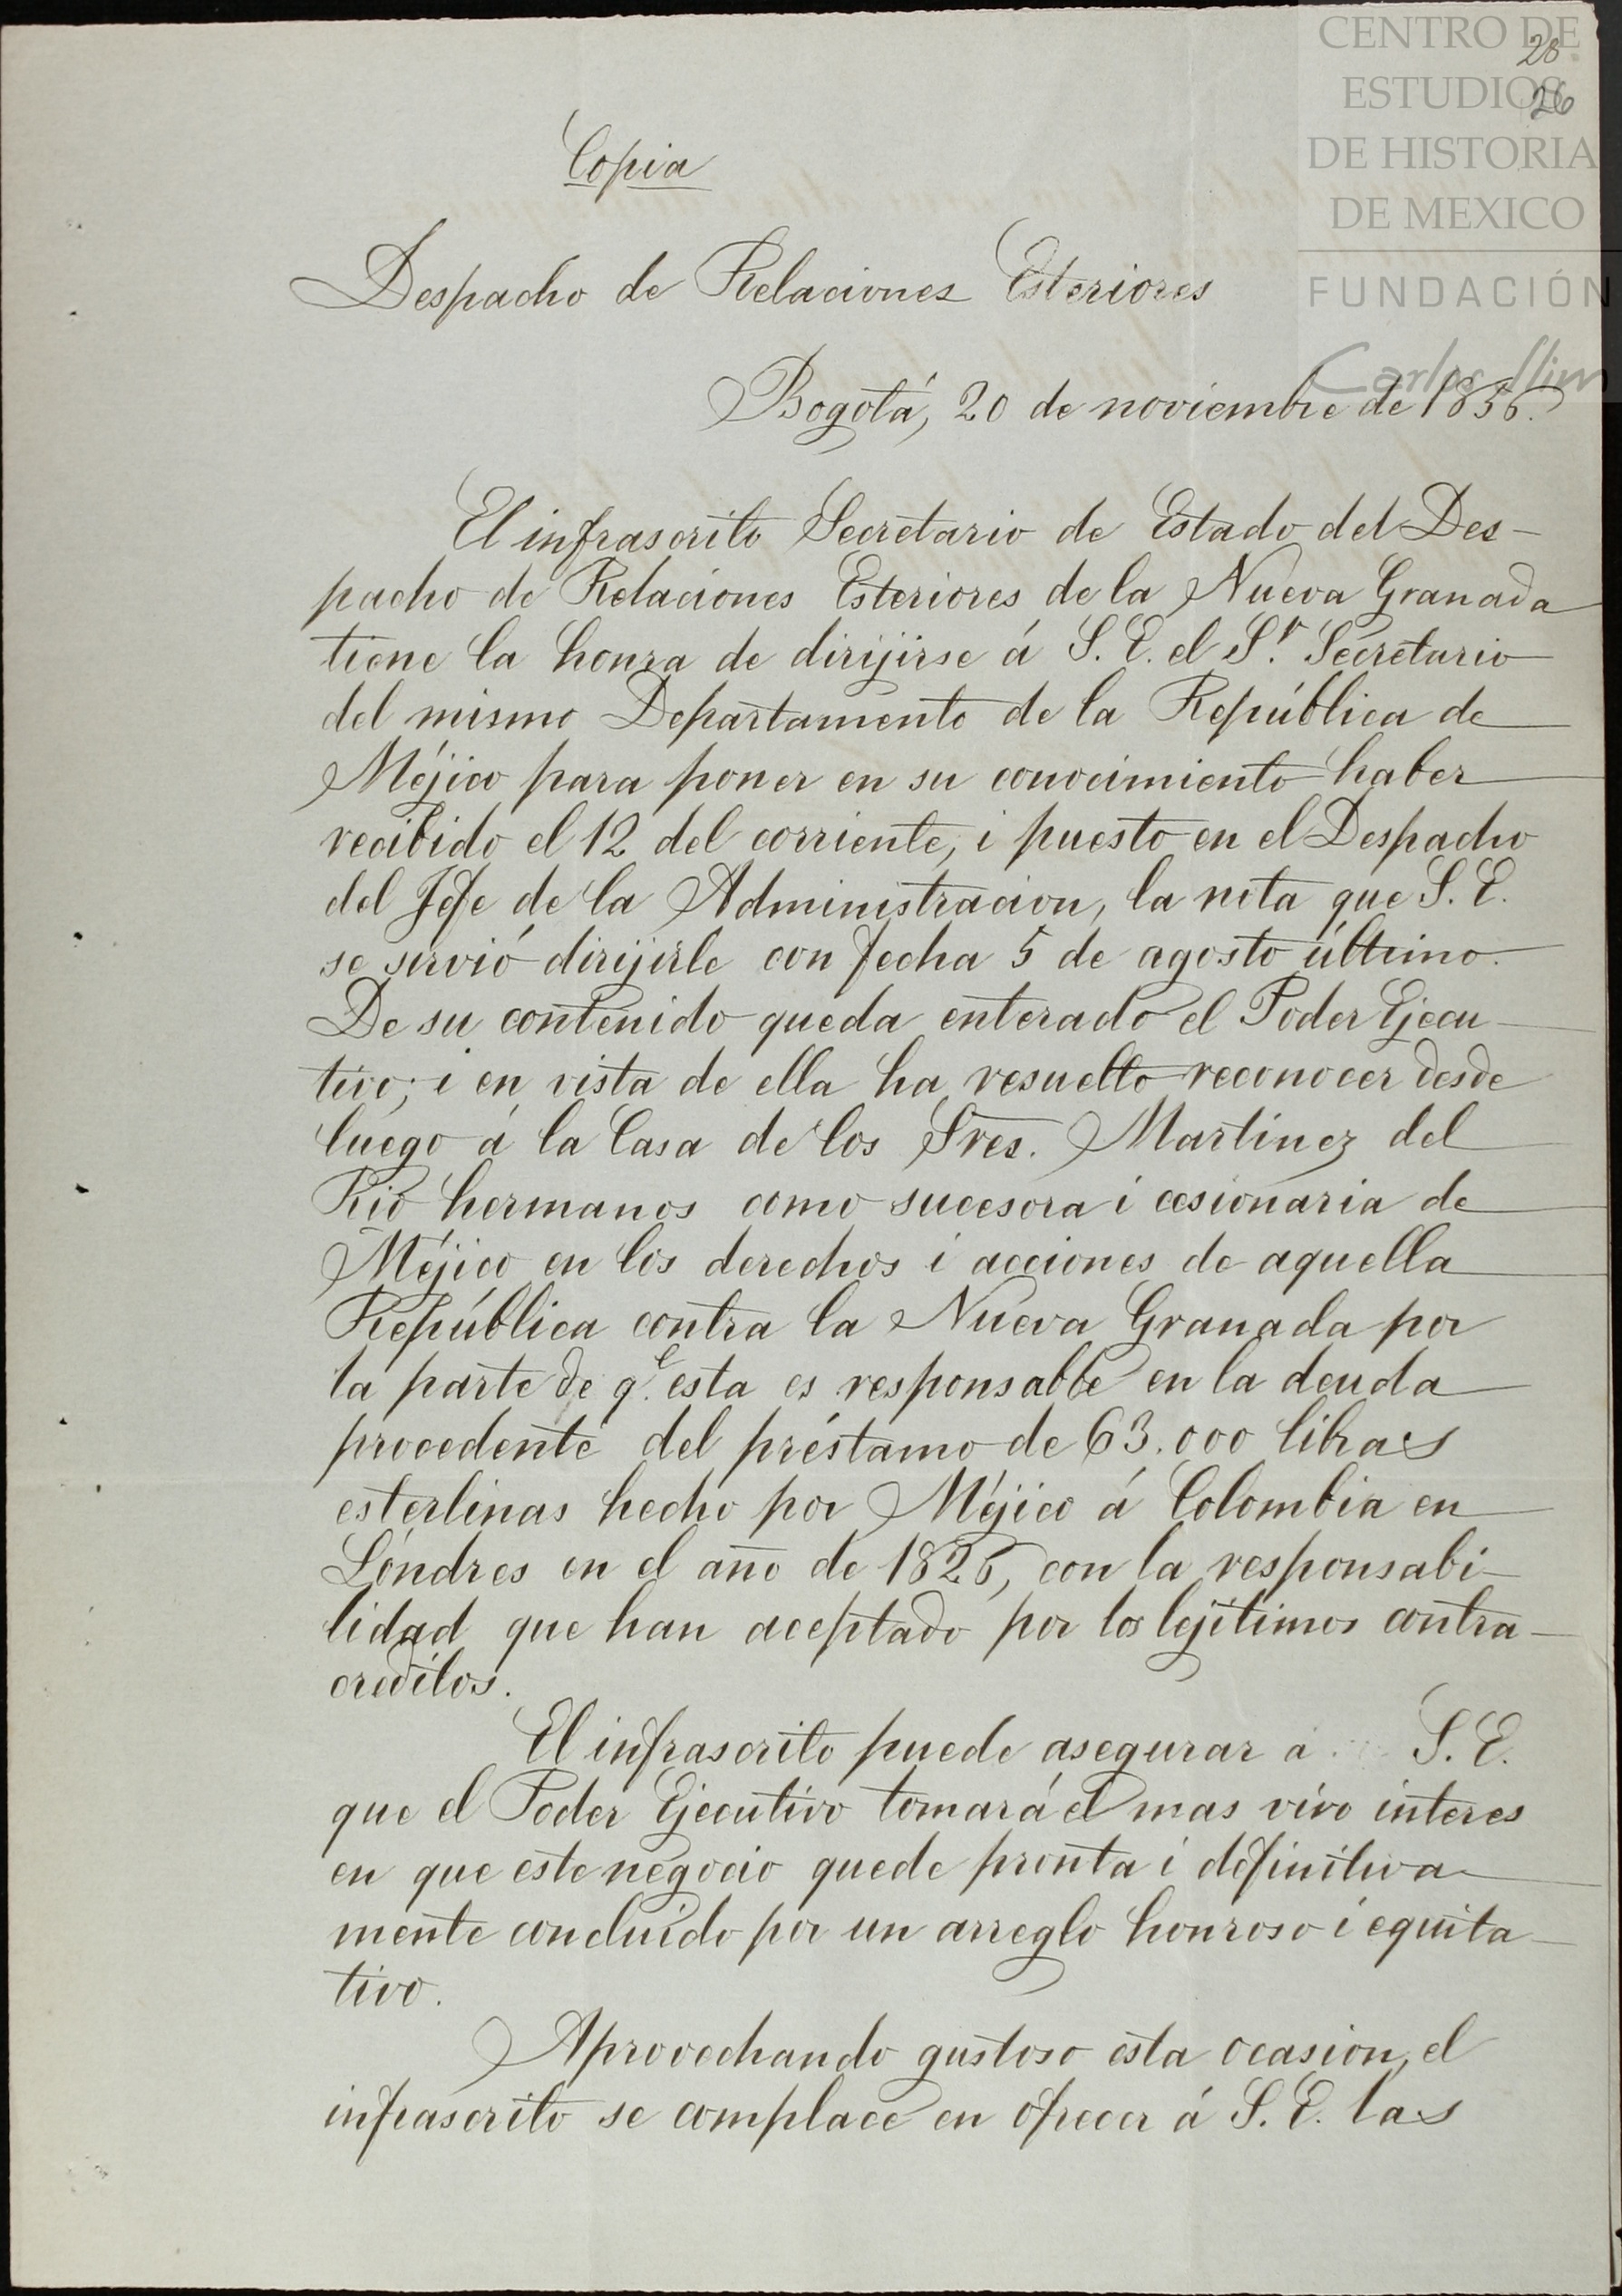 CENTRO DE
ESTUDIOS
DE HISTORIA
DE MEXICO
FUNDACIÓN
Carlos Slim
28
26
Copia
Despacho de Relaciones Esteriores
Bogotá, 20 de noviembre de 1856.
El infrascrito Secretario de Estado del Des-
pacho de Relaciones Esteriores de la Nueva Granada
tiene la honra de dirijirse á S. E. el Sr. Secretario
del mismo Departamento de la República de
Méjico para poner en su conocimiento haber
recibido el 12 del corriente, i puesto en el Despacho
del Jefe de la Administracion, la nota que S. E.
se sirvió dirijirle con fecha 5 de agosto último.
De su contenido queda enterado el Poder Ejecu-
tivo; i en vista de ella ha resuelto reconocer desde
luego á la Casa de los Sres. Martinez del
Rio hermanos como sucesora i cesionaria de
Méjico en los derechos i acciones de aquella
República contra la Nueva Granada por
la parte de qe. esta es responsable en la deuda
procedente del préstamo de 63.000 libras
esterlinas hecho por Méjico á Colombia en
Lóndres en el año de 1826, con la responsabi-
lidad que han aceptado por los lejítimos contra-
creditos.
El infrascrito puede asegurar a S. E.
que el Poder Ejecutivo tomará el mas vivo interes
en que este negocio quede pronta i definitiva
mente concluido por un arreglo honroso i equita-
tivo.
Aprovechando gustoso esta ocasion, el
infrascrito se complace en ofrecer á S. E. las